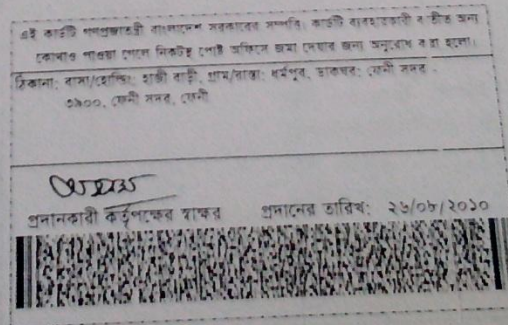 এই কার্ডটি গণপ্রজাতন্ত্রী বাংলাদেশ সরকারের সম্পত্তি। কার্ডটি ব্যবহারকারী ব্যতীত অন্য
কোথাও পাওয়া গেলে নিকটস্থ পোস্ট অফিসে জমা দেবার জন্য অনুরোধ করা হলো।
ঠিকানা: বাসা/হোল্ডিং: হাজী বাড়ী, গ্রাম/রাস্তা: ধর্মপুর, ডাকঘর: ফেনী সদর -
৩৯০০, ফেনী সদর, ফেনী
প্রদানকারী কর্তৃপক্ষের স্বাক্ষর প্রদানের তারিখ: ২৬/০৮/২০১০